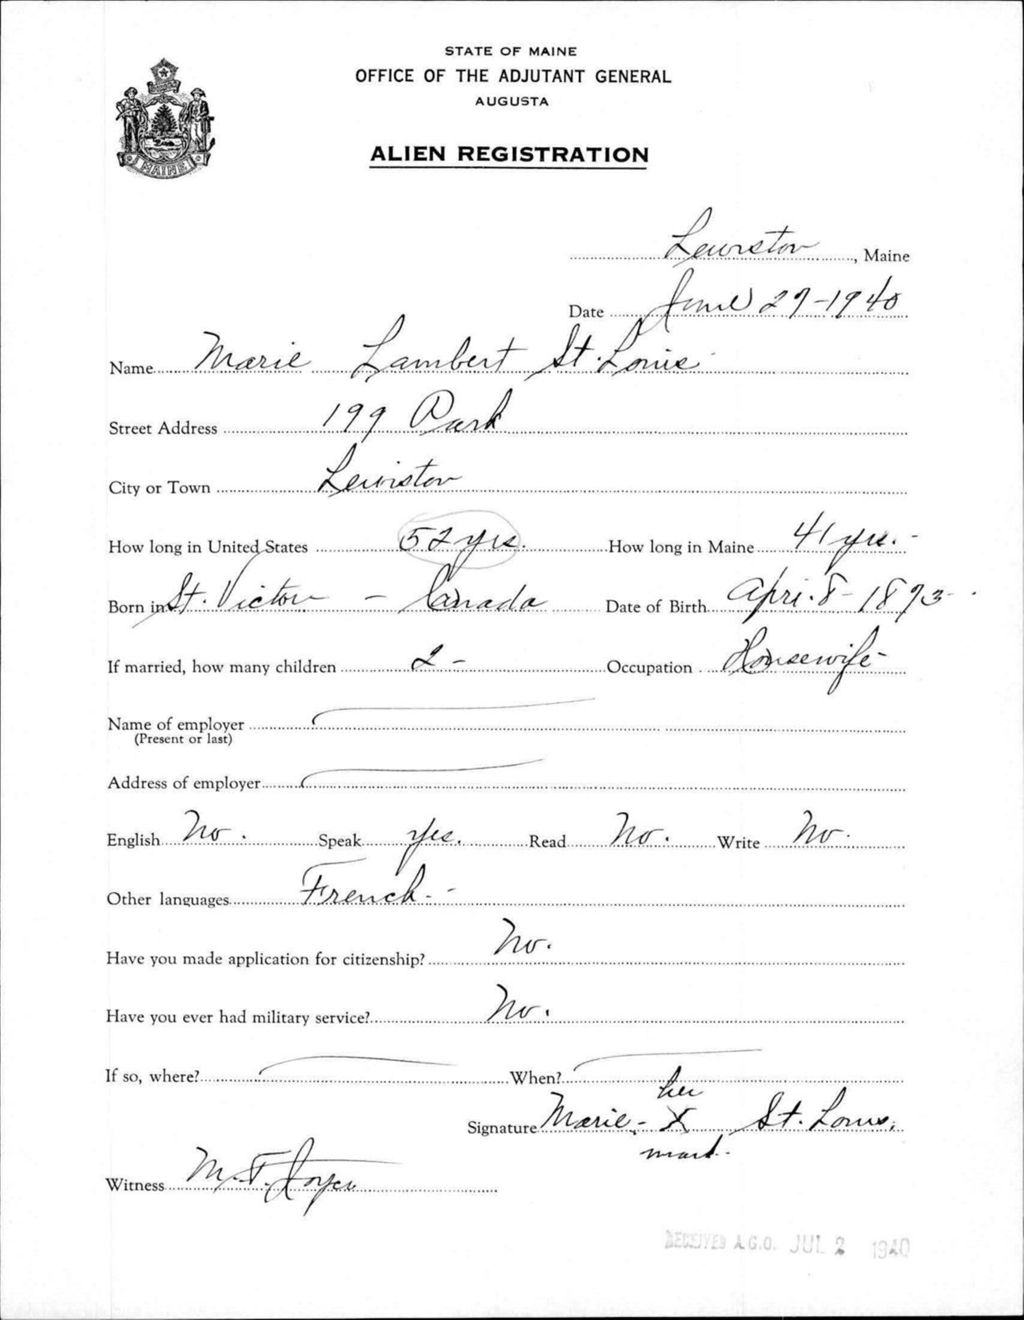 STATE OF MAINE
OFFICE OF THE ADJUTANT GENERAL
AUGUSTA
ALIEN REGISTRATION
MAINE
Lewiston, Maine
Date June 27-1940
Name Marie Lambert St. Louis
Street Address 199 Park
City or Town Lewiston
How long in United States 52 yrs. How long in Maine 41 yrs.-
Born in St. Victor - Canada Date of Birth Apri. 8-1873-
If married, how many children 2- Occupation Housewife-
Name of employer
(Present or last)
Address of employer
English No. Speak yes. Read No. Write No.
Other languages French.-
Have you made application for citizenship? No.
Have you ever had military service? No.
If so, where? When?
her
Signature Marie.- X St. Louis.
mark.
Witness M. F. Joyce
RECEIVED A.G.O. JUL 2 1940